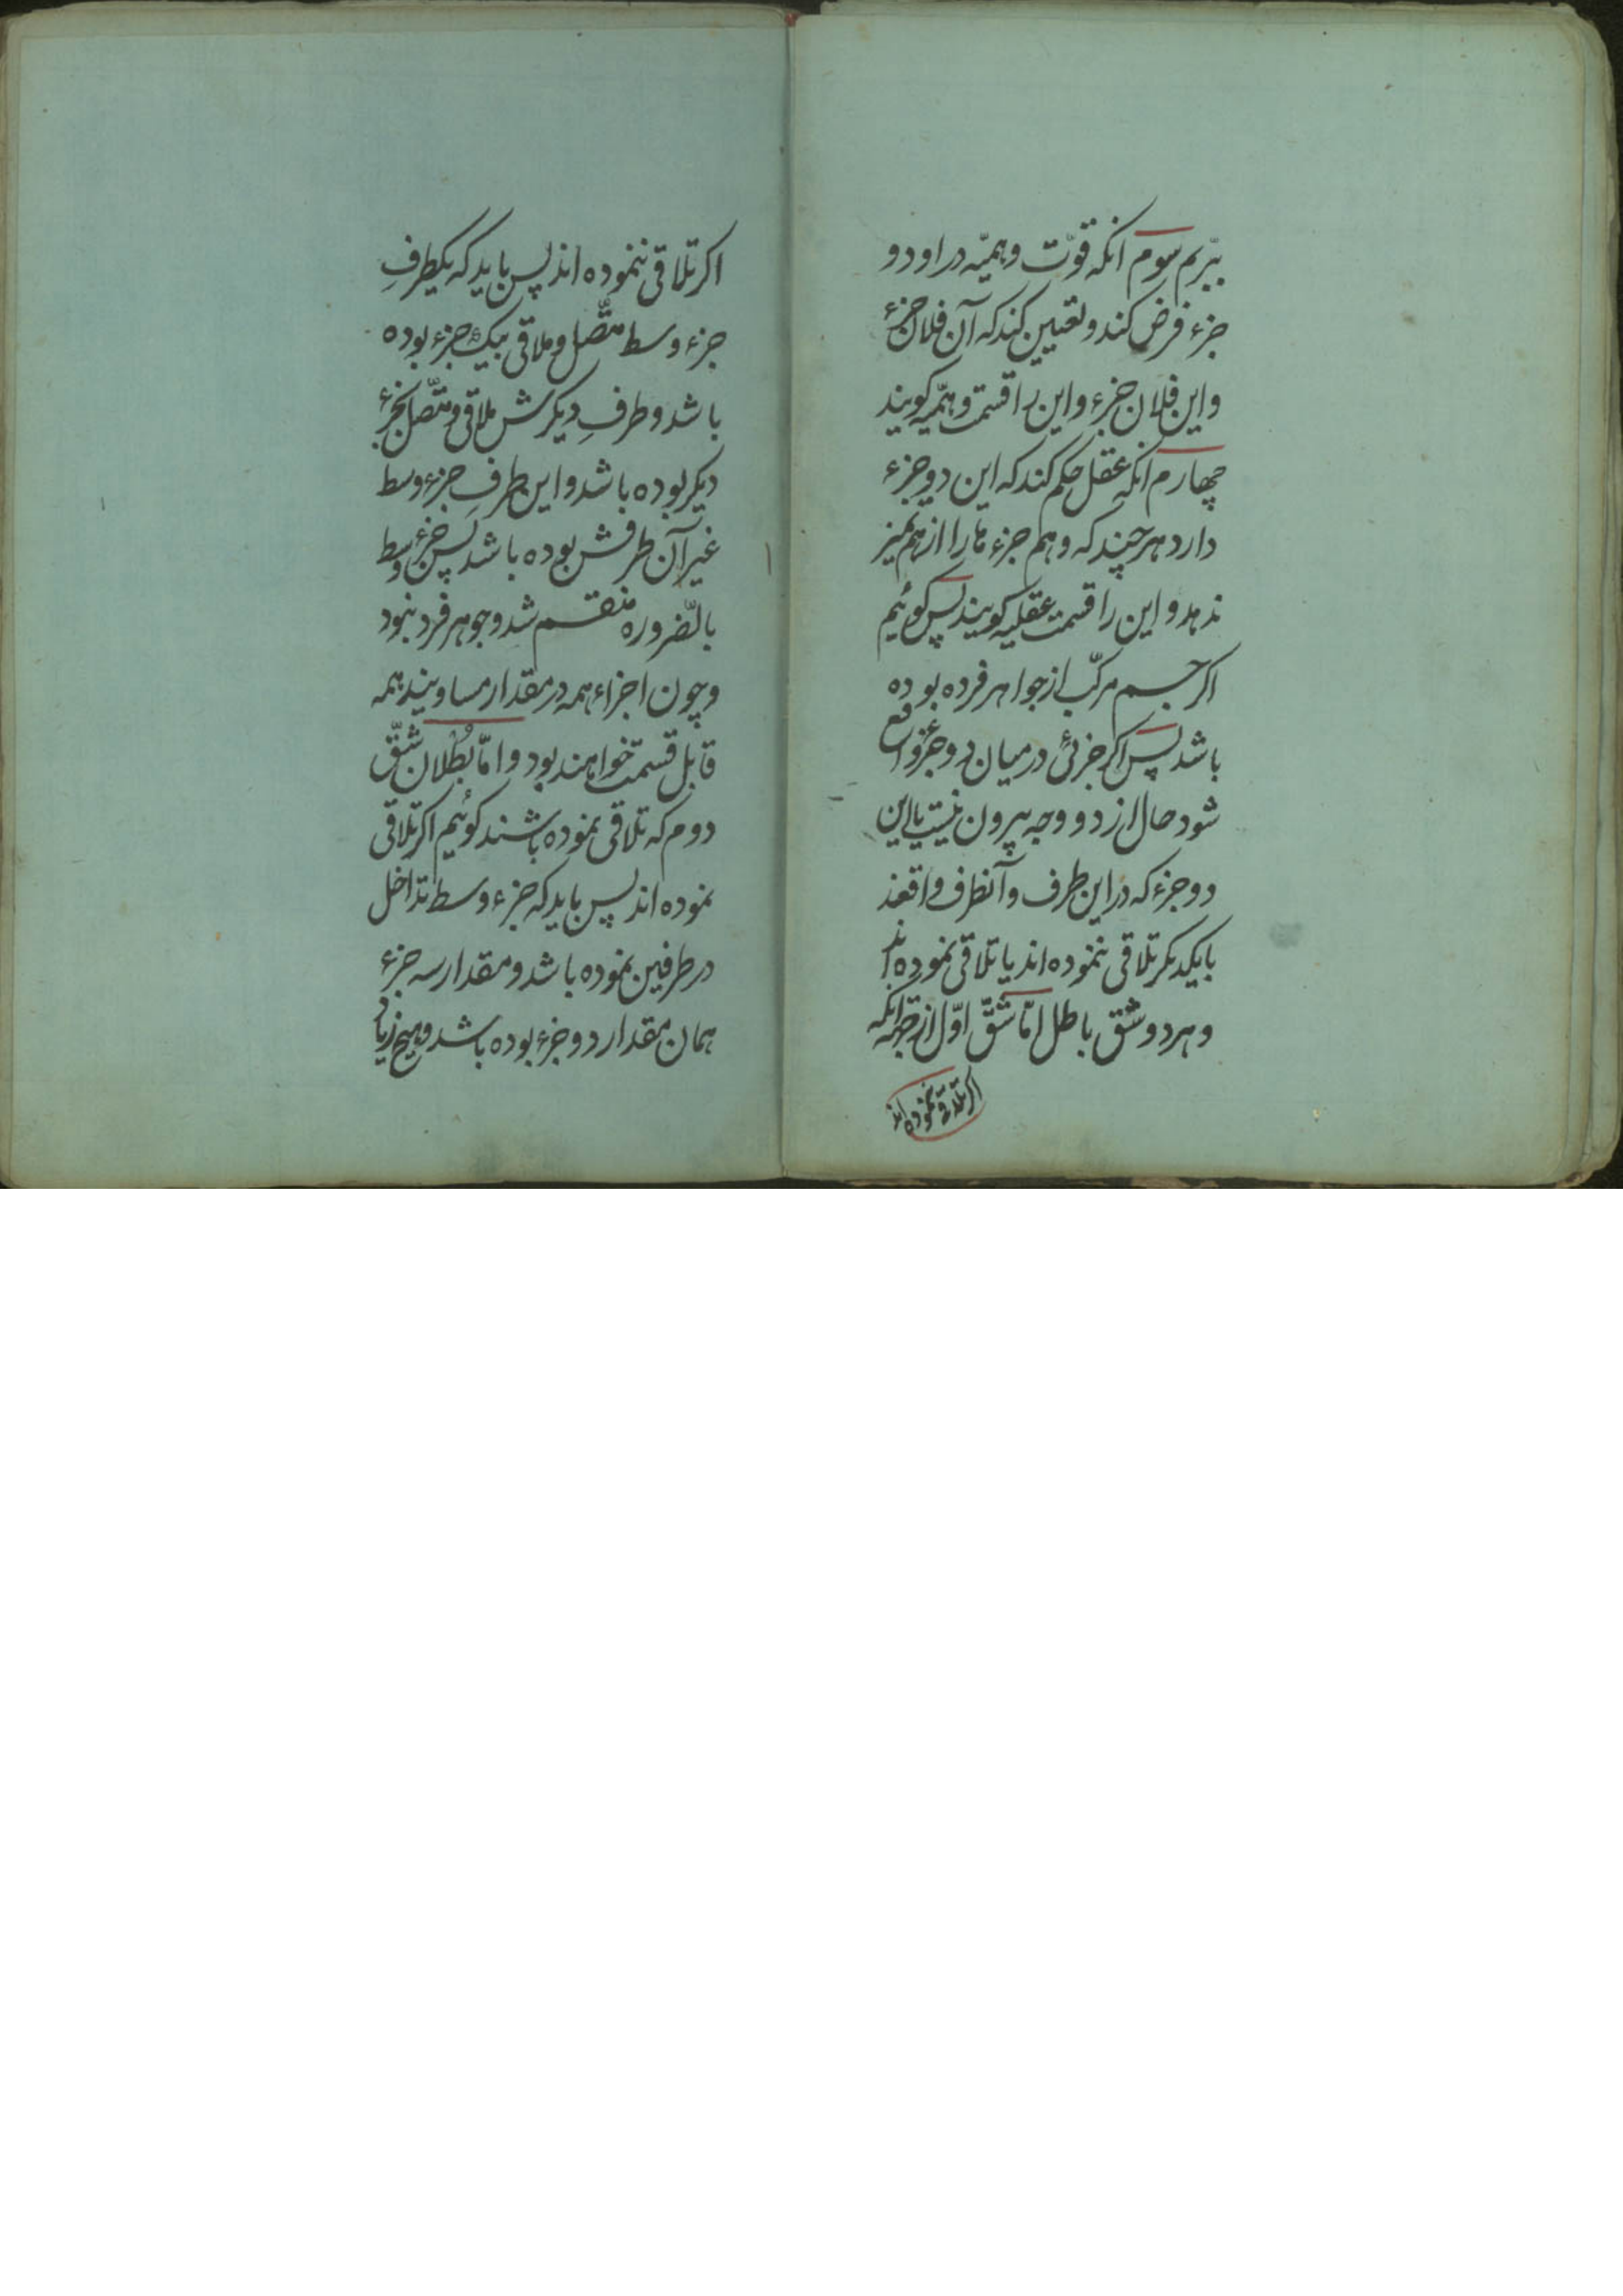 ببّریم سوم انکه قوّت وهمیّه در او دو
جزء فرض کند و تعیین کند که آن فلان جزء
و این فلان جزء و این را قسمت وهمّیه کویند
چهارم انکه عقل حکم کند که این دو جزء
دارد هر چند که وهم جزء ها را از هم تمیز
ندهد و این را قسمت عقلیه کویند پس کوئیم
اکر جسم مرکّب از جواهر فرده بوده
باشد پس اکر جزئی در میان دو جزء واقع
شود حال از دو وجه بیرون نیست یا این
دو جزء که در این طرف و آنطرف واقعند
با یکدیکر تلاقی ننموده اند یا تلاقی نموده اند
و هر دو شق باطل امّا شقّ اوّل از جهة انکه
اکر تلاقی ننموده اند
اکر تلاقی ننموده اند پس باید که یکطرفِ
جزء وسط متّصل و ملاقی بیک جزء بوده
باشد و طرفِ دیکرش ملاقی و متّصل بجزء
دیکر بوده باشد و این طرفِ جزء وسط
غیر آن طرفش بوده باشد پس جزء وسط
بالضّروره منقسم شد و جوهر فرد نبود
و چون اجزاء همه در مقدار مساویند همه
قابل قسمت خواهند بود و امّا بُطلان شقّ
دوم که تلاقی نموده باشند کوئیم اکر تلاقی
نموده اند پس باید که جزء وسط تداخل
در طرفین نموده باشد و مقدار سه جزء
همان مقدار دو جزء بوده باشد و هیچ زیاد